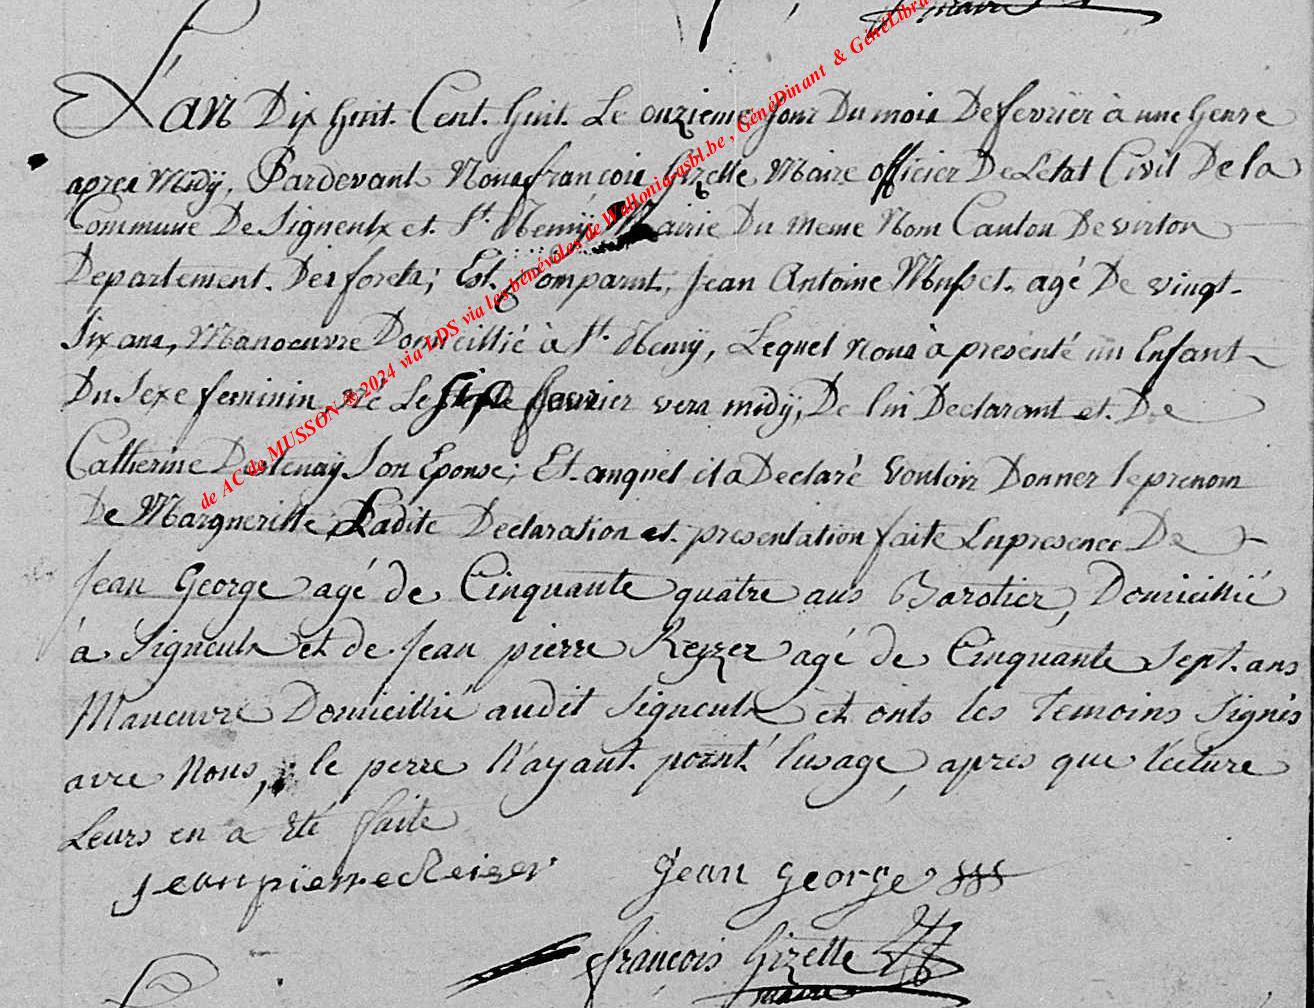 maire
L'an Dix huit Cent huit Le onzieme Jour Du mois De fevrier à une heure
apres Midÿ, Pardevant Nous françois Gizelle Maire officier De Letat Civil De la
Commune De Signeulx et St Remÿ Mairie Du meme Nom Canton De virton
Departement Des forets; Est Comparut, Jean Antoine Musset agé De vingt
Six ans, Manoeuvre Domicillié à St Remÿ, Lequel nous à presenté un Enfant
Du Sexe feminin, né Le fevrier vers midÿ, De lui Declarant et De
Catherine Son Epouse; Et auquel il a Declaré vouloir Donner le prenom
De Margueritte, Ladite Declaration et presentation faite En presence De
Jean George agé de Cinquante quatre ans Domicillié
à Signeulx et de Jean pierre Reyzer agé de Cinquante Sept ans
Maneuvre Domicillié audit Signeulx et onts les Temoins Signés
avec Nous, le perre N'ayant point l'usage, apres que lecture
Leurs en a Eté faite
Jean pierre Reiser Jean George
françois Gizelle
maire
de AC de MUSSON ®2024 via LDS via les bénévoles de Wallonia-asbl.be , GénéDinant & GénéLibra